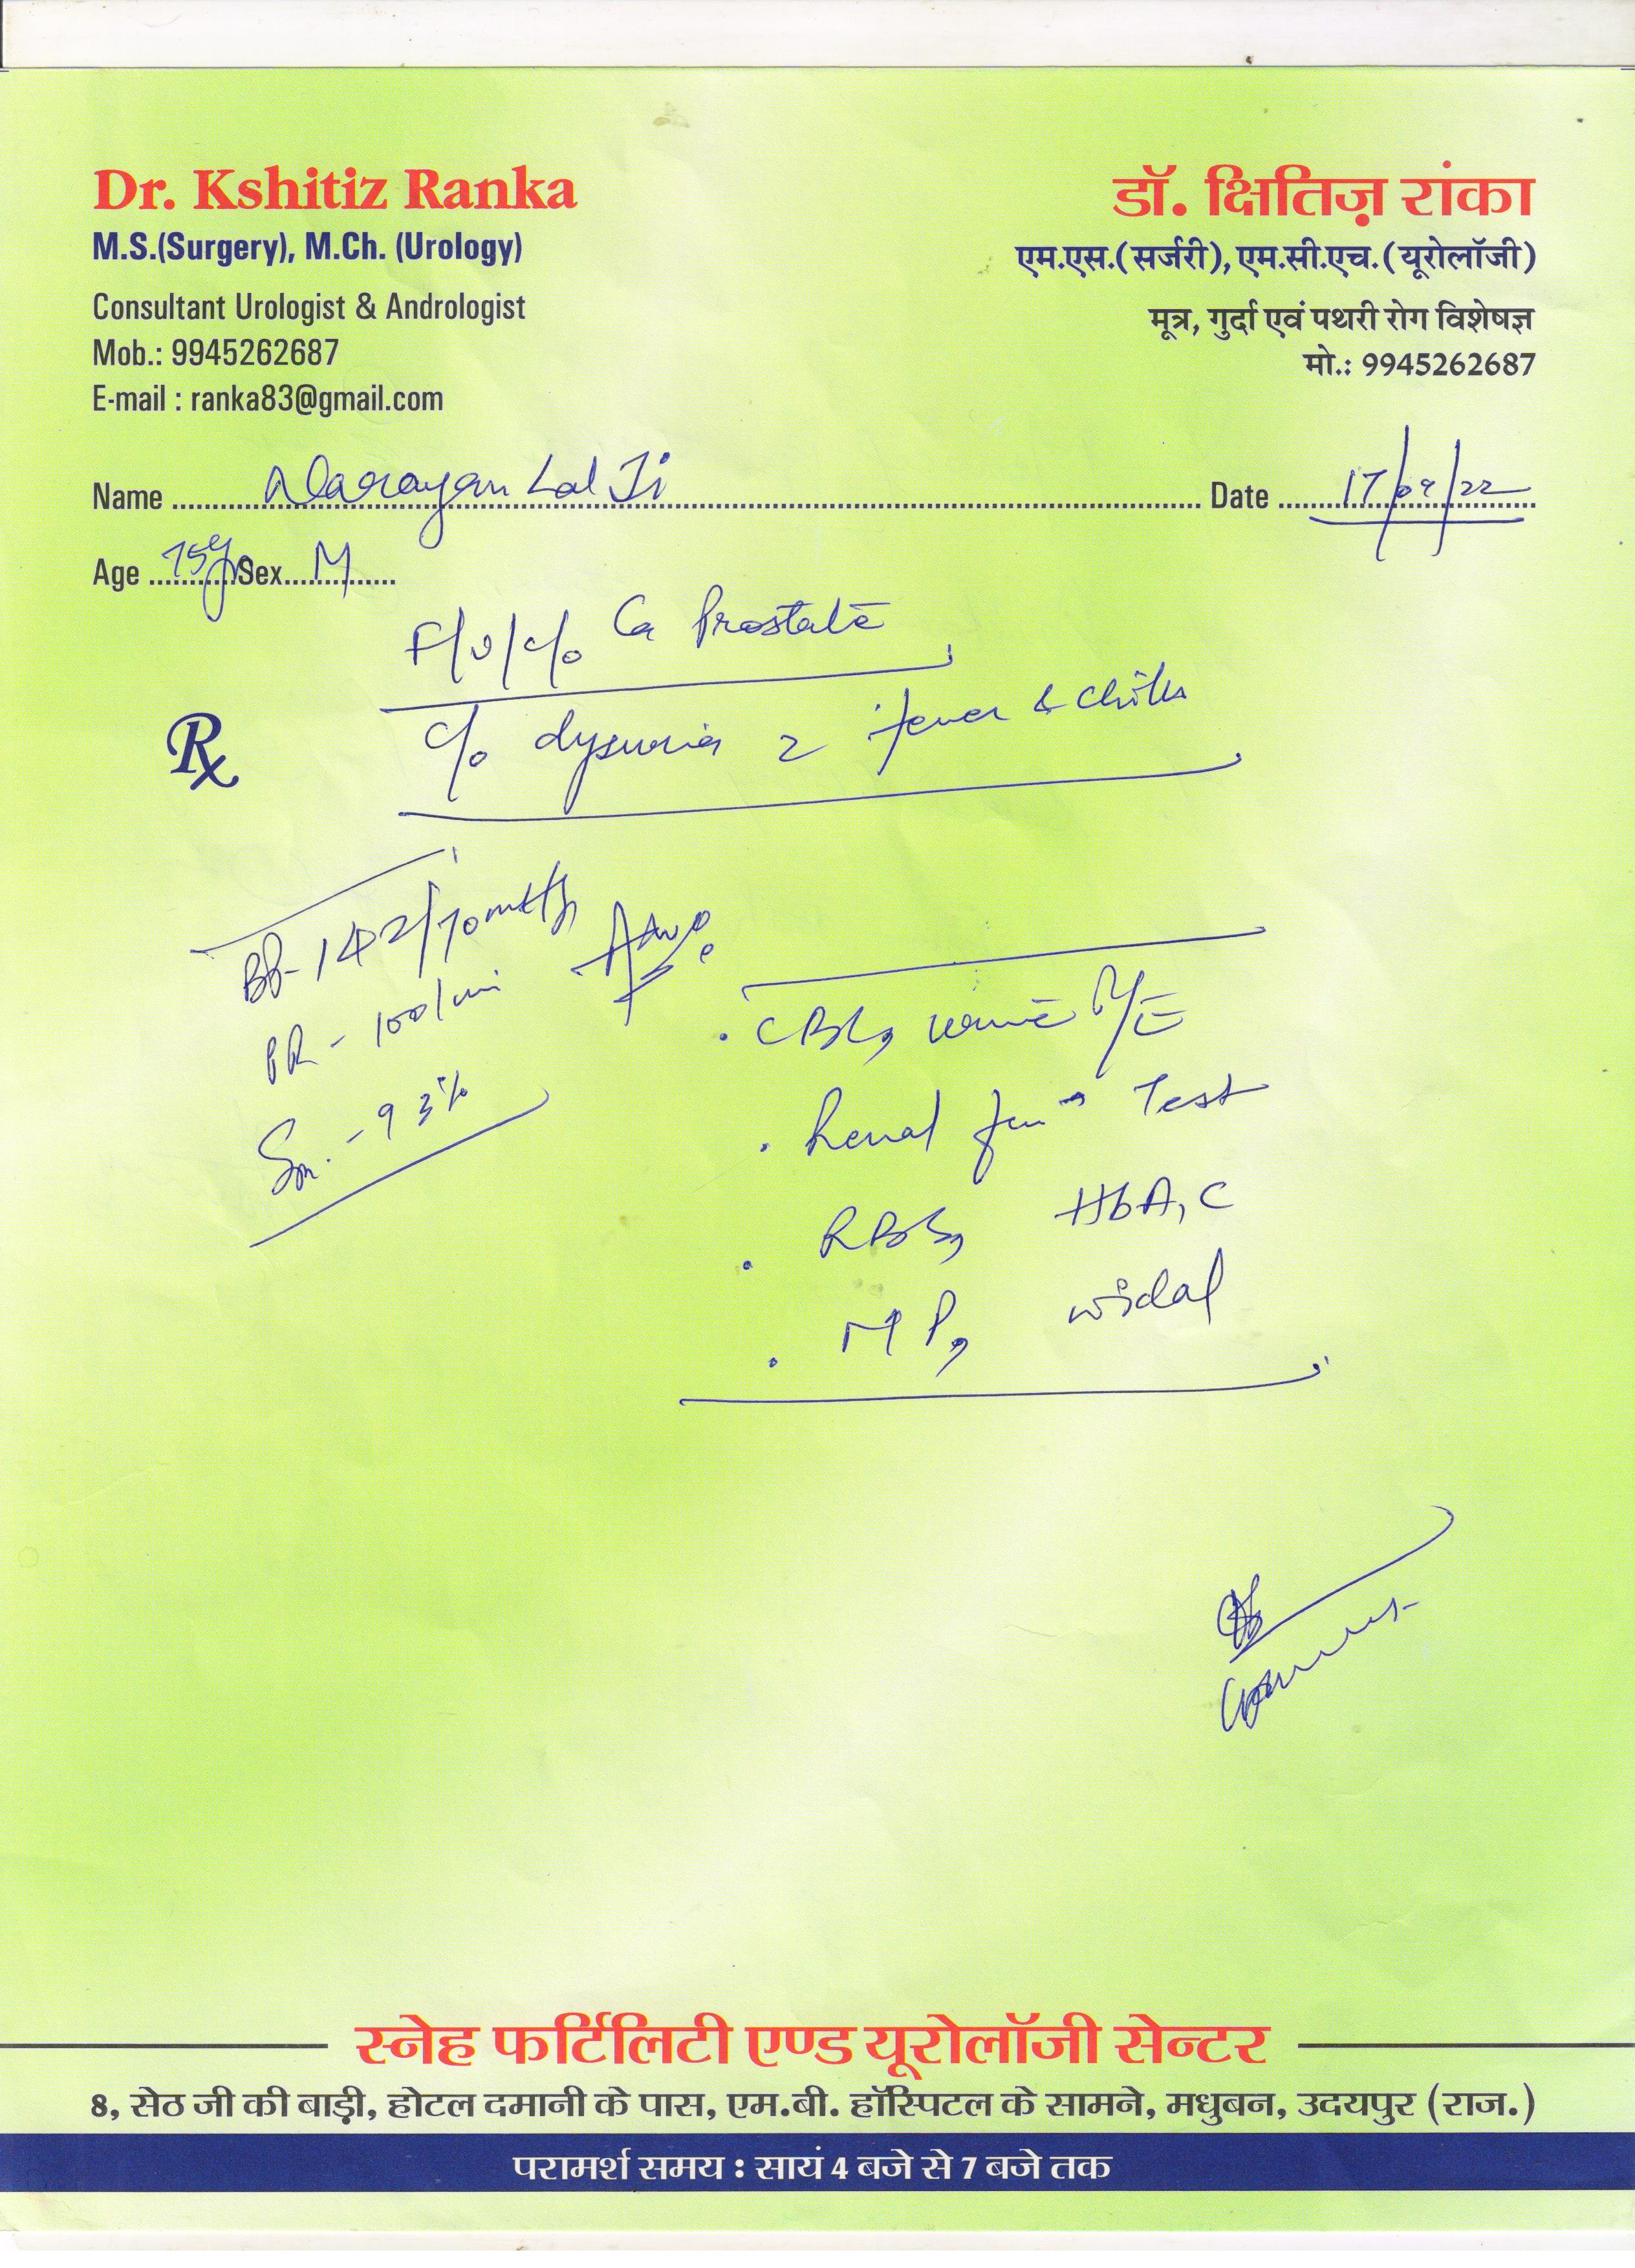 Dr. Kshitiz Ranka
M.S.(Surgery), M.Ch. (Urology)
Consultant Urologist & Andrologist
Mob.: 9945262687
E-mail : ranka83@gmail.com
डॉ. क्षितिज़ रांका
एम.एस.(सर्जरी), एम.सी.एच.(यूरोलॉजी)
मूत्र, गुर्दा एवं पथरी रोग विशेषज्ञ
मो.: 9945262687
Name Narayan Lal Ji Date 17/09/22
Age 75y Sex M
F/U/c/o Ca Prostate
Rx
c/o dysuria fever & chills
BP- 142/70mmHg
PR - 100/min
- 93%
Adv.
. CBC, urine R/E
. Renal fun Test
. RBS, HbA1C
. MP, widal
स्नेह फर्टिलिटी एण्ड यूरोलॉजी सेन्टर
8, सेठ जी की बाड़ी, होटल दमानी के पास, एम.बी. हॉस्पिटल के सामने, मधुबन, उदयपुर (राज.)
परामर्श समय : सायं 4 बजे से 7 बजे तक